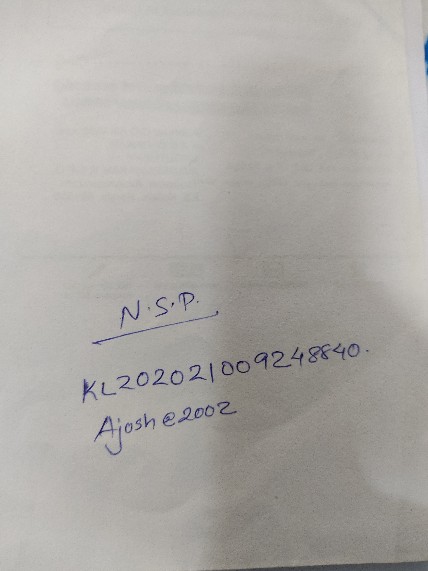 N.S.P.
KL202021009248840.
Ajosh@2002